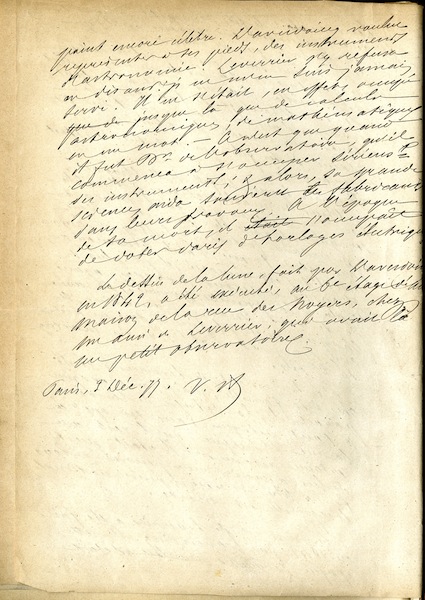 point encore célèbre. D'avidoin voulut
représenter à ses pieds, des instruments
d'astronomie. Leverrier s'y refusa
en disant: je ne m'en suis jamais
servi. Il ne s'était, en effet, occupé
que jusque là que de calculs
astronomiques, de mathématiques
en un mot. - Ce n'est que quand
il fut Dr. de l'observatoire, qu'il
commença à s'occuper sérieusmt
des instruments; & alors, sa grande
science aida souvent les fabricants
dans leurs travaux. A l'époque
de sa mort, il était s'occupait
de doter Paris d'horloges électriq
Le dessin de la lune, fait par
en 1842, a été exécuté, au 6e étage d'une
maison de la rue des Noyers, chez
un ami de Leverrier, qui avait là
un petit observatoire.
Paris, 3 Déc. 77. V.